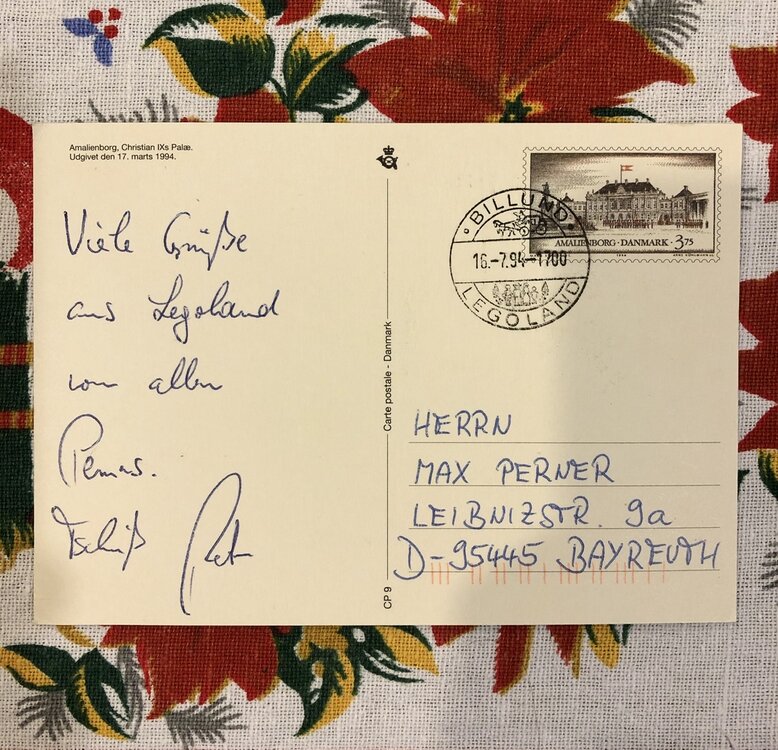 Amalienborg, Christian IXs Palæ.
Udgivet den 17. marts 1994.
Viele Grüße
aus Legoland
von allen
Perners.
Tschüß Peter
Carte postale - Danmark
CP 9
AMALIENBORG · DANMARK · 3.75
BILLUND
16.-7.94-1700
LEGOLAND
HERRN
MAX PERNER
LEIBNIZSTR. 9a
D-95445 BAYREUTH